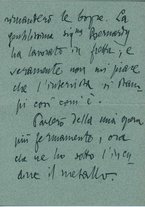 rimanderò le bozze. La
gentilissima sig.na Bernardy
ha lavorato in fretta e
veramente non mi piace
che l'intervista si stam-
pi così com'è.
Parlerò della mia opera
più fermamente, ora
che ne ho sotto l'incu-
dine il metallo.